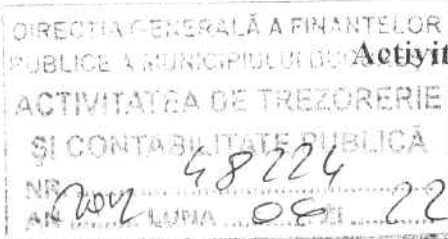 DIRECȚIA GENERALĂ A FINANȚELOR
PUBLICE A MUNICIPIULUI
Activit
ACTIVITATEA DE TREZORERIE
ȘI CONTABILITATE PUBLICĂ
NR 48224
AN LUNA 06 ZI 22